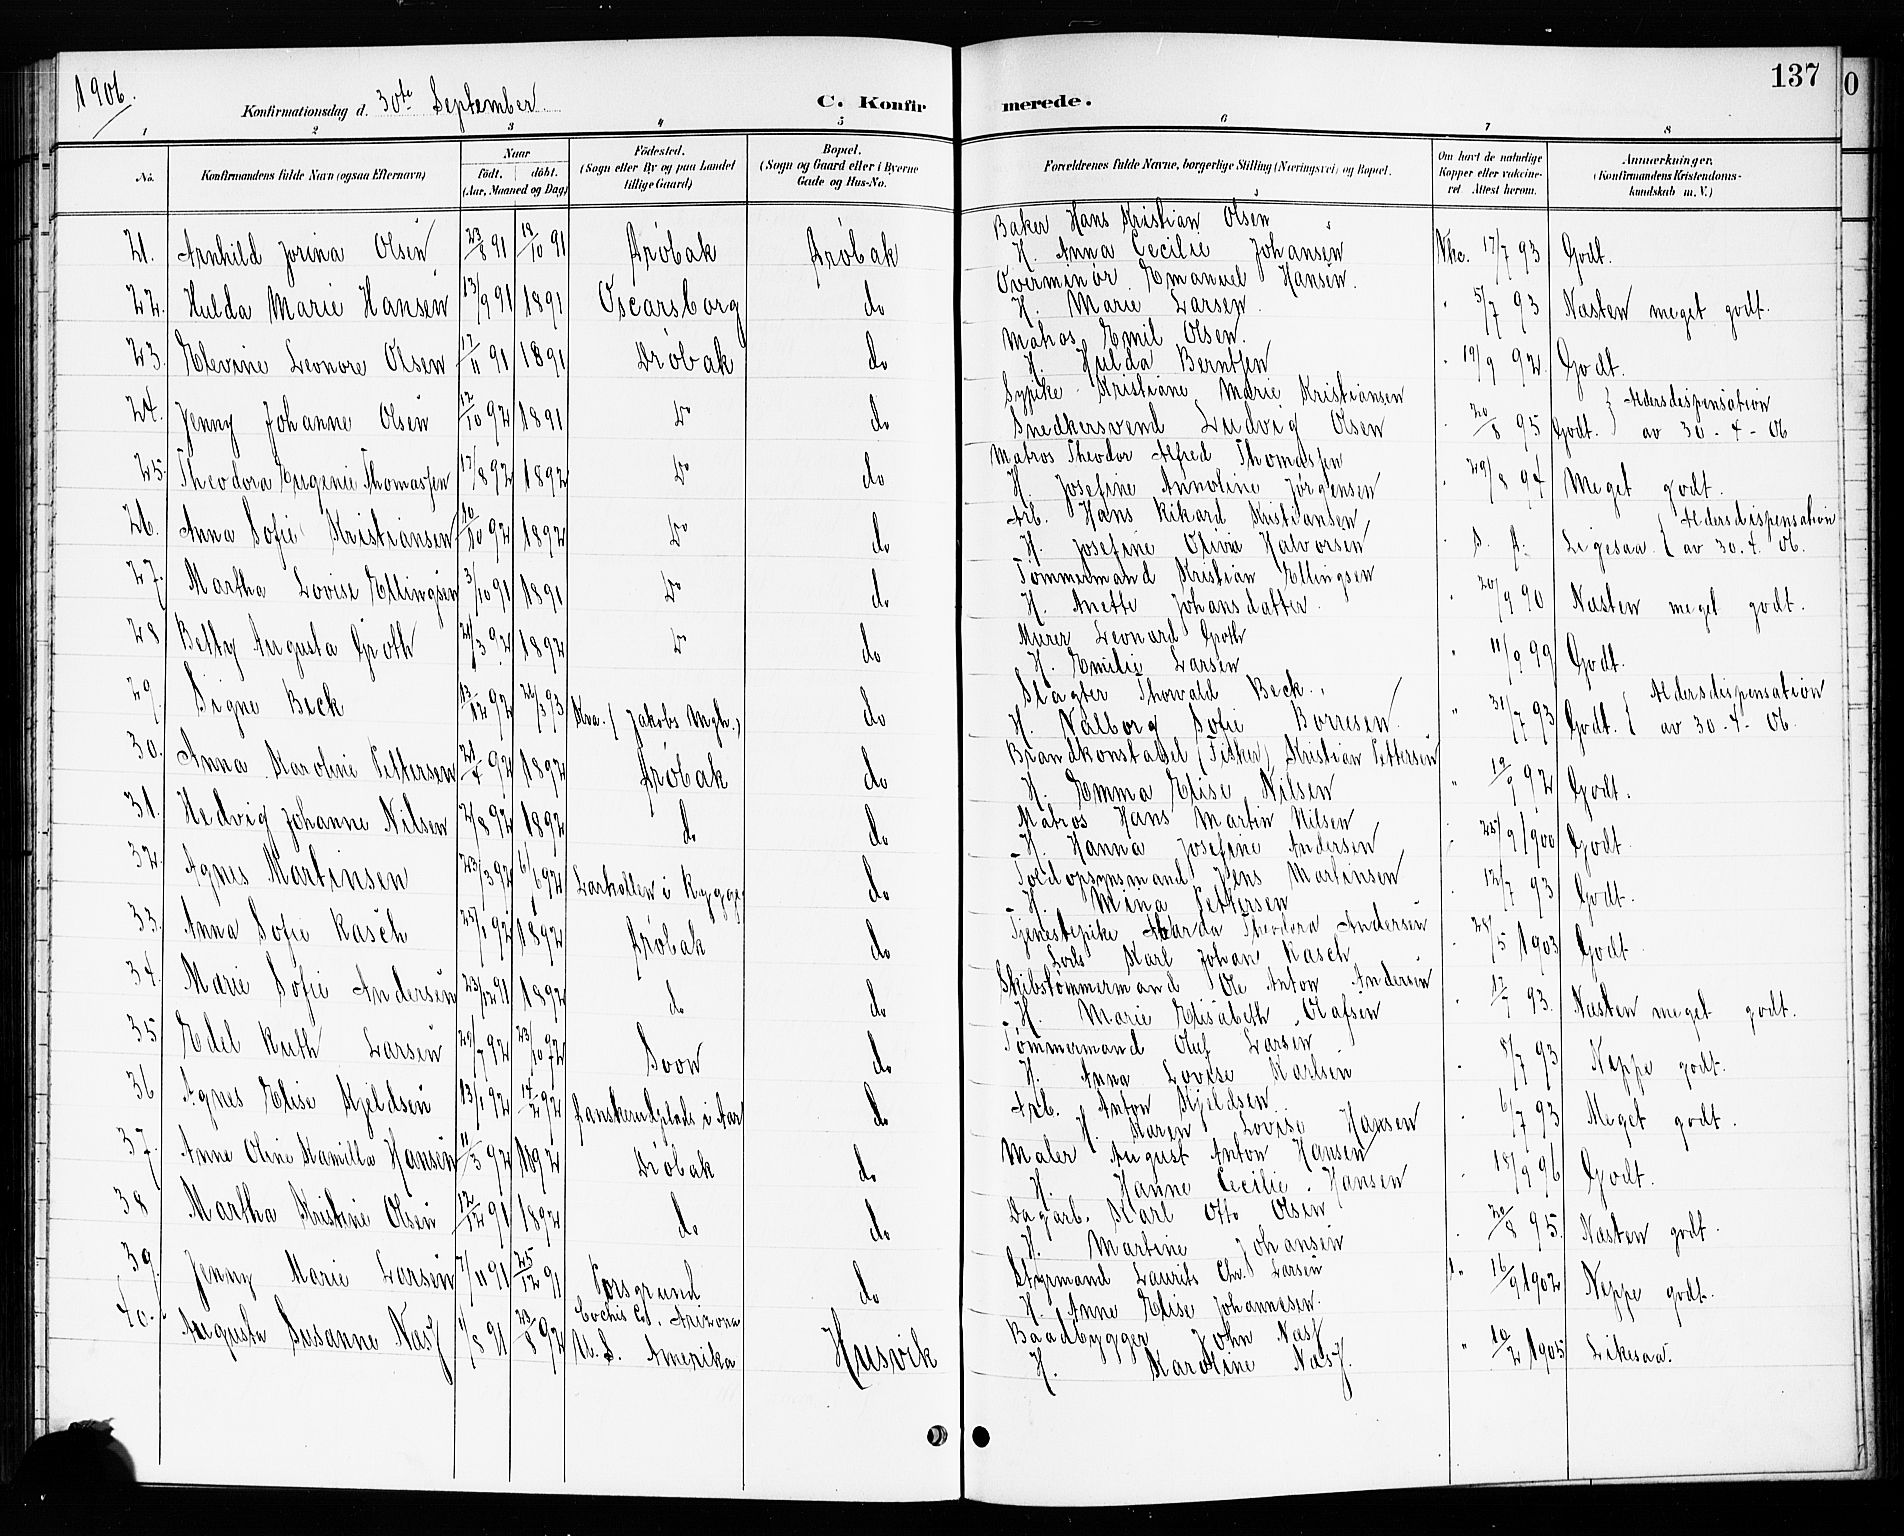 1906.
Konfirmationsdag d. 30te September
C. Konfirmerede.
137
1 2 3 4 5 6 7 8
No.
Konfirmandens fulde Navn (ogsaa Efternavn)
Naar
født. døbt.
(Aar, Maaned og Dag)
Fødested.
(Sogn eller By og paa Landet
tillige Gaard)
Bopæl.
(Sogn og Gaard eller i Byerne
Gade og Hus-No.
Forældrenes fulde Navne, borgerlige Stilling (Næringsvei) og Bopæl.
Om havt de naturlige
Kopper eller vakcine-
ret. Attest herom.
Anmerkninger,
(Konfirmandens Kristendoms-
kundskab m. V.)
21. Arnhild Jorina Olsen 23/8 91 12/10 91 Drøbak Drøbak Baker Hans Kristian Olsen
H. Anna Cecilie Johansen Vkc. 17/7 93 Godt.
22. Hulda Marie Hansen 13/9 91 1891 Oscarsborg do Overminør Emanuel Hansen.
H. Marie Larsen. " 5/7 93 Næsten meget godt.
23. Elevine Leonore Olsen 17/11 91 1891 Drøbak do Matros Emil Olsen.
H. Hulda Berntsen " 19/9 92. Godt.
24. Jenny Johanne Olsen 12/10 92 1891 do do Sypike Kristiane Marie Kristiansen
Snedkersvend Ludvig Olsen " 20/8 95 Godt. { Aldersdispensation
av 30-4-06
25. Theodora Eugenie Thomassen 17/8 92 1892 do do Matros Theodor Alfred Thomassen
H. Josefine Annoline Jørgensen " 29/8 94 Meget godt.
26. Anna Sofie Kristiansen 10/10 92 1892 do do Arb. Hans Rikard Kristiansen
H. Josefine Olivia Halvorsen " s. d. Ligesaa. { Aldersdispensation
av 30.4.06.
27. Martha Lovise Ellingsen 3/10 91 1891 do do Tømmermand Kristian Ellingsen
H. Anette Johansdatter. " 20/9 90 Næsten meget godt.
28 Betty Augusta Groth 21/3 92 1892 do do Murer Leonard Groth
H. Emilie Larsen " 11/9 99 Godt.
29. Signe Beck 13/12 92 26/3 93 Kra. (Jakobs Mgh.) do Slagter Thorvald Beck.
H. Valborg Sofie Borresen. " 31/7 93 Godt. { Aldersdispensation
av 30-4-06.
30. Anna Karoline Pettersen 21/4 92 1892 Drøbak do Brandkonstabel (Fisker) Kristian Pettersen
H. Emma Elise Nilsen " 19/9 92 Godt.
31. Hedvig Johanne Nilsen 2/8 92 1892 do do Matros Hans Martin Nilsen
H. Hanna Josefine Andersen " 25/9 1900 Godt.
32. Agnes Martinsen 23/3 92 6/6 92 Larkollen i Rygge do Toldopsynsmand Jens Martinsen
H. Mina Pettersen " 12/7 93 Godt.
33. Anna Sofie Rasch 25/1 92 1892 Drøbak do Tjenestepike Theodora Andersen
Karl Johan Rasch " 28/5 1903 Godt
34. Marie Sofie Andersen 23/12 91 1892 do do Skibstømmermand Ole Anton Andersen
H. Marie Elisabeth Olafsen " 12/7 93. Næsten meget godt.
35 Edel Ruth Larsen 29/7 92 23/10 92 Soon do Tømmermand Oluf Larsen
H. Anna Lovise Karlsen " 8/7 93 Neppe godt.
36 Agnes Elise Kjeldsen 13/1 92 14/2 92 i Aas do Arb. Anton Kjeldsen
H. Maren Lovise Hansen " 6/7 93 Meget godt.
37. Anne Oline Kamilla Hansen 11/3 92 1892 Drøbak do Maler August Anton Hansen
H. Hanne Cecilie Hansen " 18/9 96 Godt.
38 Martha Kristine Olsen 12/12 91 1892 do do Dagarb. Karl Otto Olsen
H. Martine Johansen " 20/8 95. Næsten godt.
39. Jenny Marie Larsen 7/11 91 25/12 91 Porsgrund do Styrmand Laurits Chr. Larsen
H. Anne Elise Johannesen. " 16/9 1902 Neppe godt.
40. Augusta Susanne Næss 11/8 91 23/8 92 Cochis Co. Arizona
U. S. Amerika Husvik Baadbygger John Næss
H. Karoline Næss. " 10/2 1905 Likesaa.